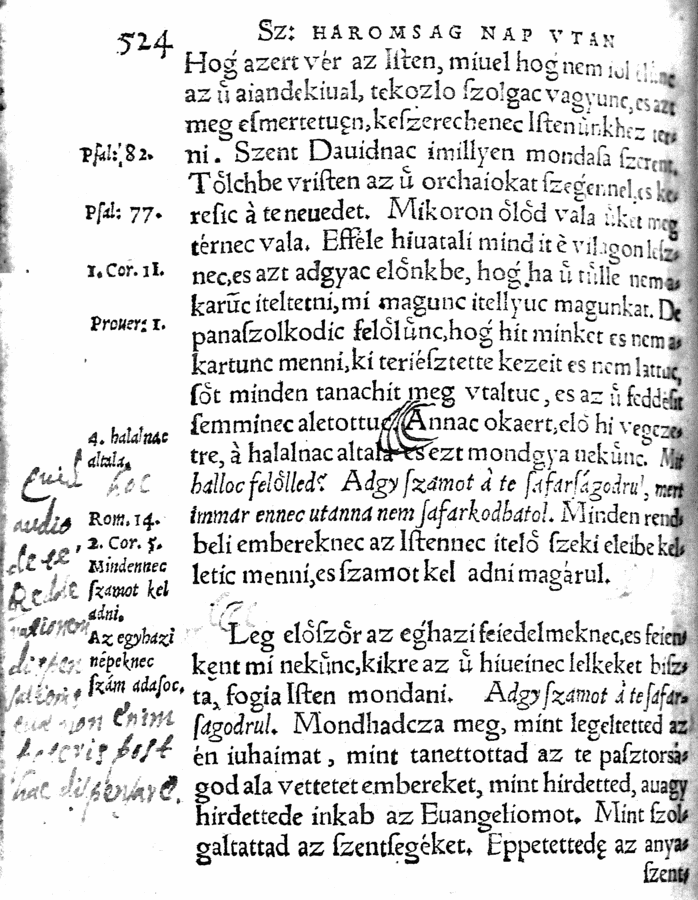 524
Sz: HAROMSAG NAP VTAN
Hoǵ azert vér az Iſten, miuel hog nem iol
az ů aiandekiual, tekozlo ſzolgac vagyunc, es azt
meg eſmertetuęn, keſzerechenec Iſten ůnkhez ter⸗
Pſal: 82.
ni. Szent Dauidnac imillyen mondaſa ſzerent.
Tőlchbe vriſten az ů orchaiokat ſzegennel, es ke⸗
Pſal: 77.
reſic à te neuedet. Mikoron őlőd vala ůket meg
térnec vala. Effele hiuatali mind itè vilagon
1. Cor. 11.
nec, es azt adgyac előnkbe, hog, ha ů tůlle nem a⸗
karůc iteltetni, mi magunc itellyuc magunkat. De
Prouer: 1.
panaſzolkodic felőlůnc, hoǵ hit minket es nem a⸗
kartunc menni, ki terieſztette kezeit es nem lattuc,
ſőt minden tanachit meg vtaltuc, es az ů feddeſit
ſemminec aletottuc. Annac okaert, elő hi vegeze⸗
4. halalnac
altala.
tre, à halalnac altala es ezt mondgya nekůnc. Mit
halloc felőlled? Adgy ſzamot à te ſafarſágodrul, mert
Rom. 14.
immar ennec utanna nem ſafarkodhatol. Minden rend⸗
2. Cor. 5.
beli embereknec az Iſtennec itelő ſzeki eleibe kel⸗
Mindennec
ſzamot kel
adni.
letic menni, es ſzamot kel adni magárul.
Az egyhazi
népeknec
ſzám adaſoc.
Leg előſzőr az eǵhazi feiedelmeknec, es feien⸗
kent mi nekůnc, kikre az ů hiueinec lelkeket biſz⸗
ta, fogia Iſten mondani. Adgy ſzamot à te ſafar⸗
ſagodrul. Mondhadcza meg, mint legeltetted az
én iuhaimat, mint tanettottad az te paſztorsá⸗
god ala vettetet embereket, mint hirdetted, auagy
hirdettede inkab az Euangeliomot. Mint ſzol⸗
galtattad az ſzentſegéket. Eppetettedę az anya⸗
ſzent⸗
hoc
audio
de te,
Redde
rationem
enim
poteris post
hac dispensare.